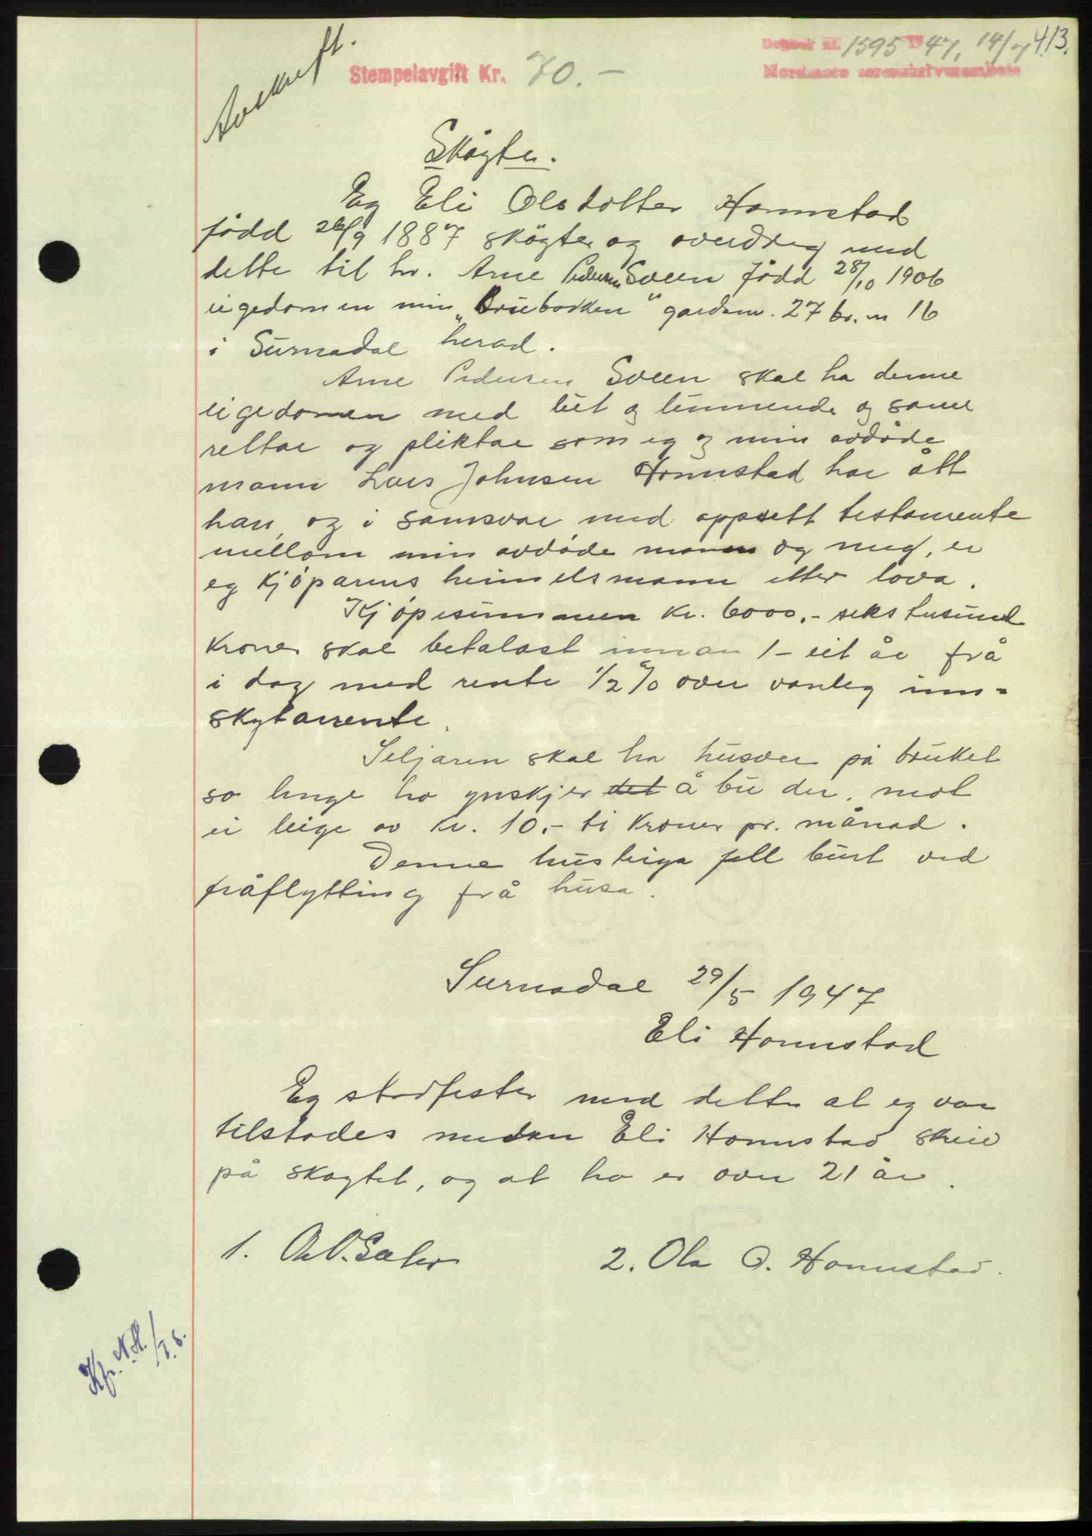 413.
Dagbok nr. 1595 1947, 14/7
Nordmøre sorenskriverembete
Avskrift.
Stempelavgift Kr. 70.-
Skøyte.
Eg Eli Olsdotter Honnstad
född 26/9 1887 skøyter og overdreg med
dette til hr. Arne Pedersen Sveen född 28/10 1906
eigedomen min "Bruebakken" gardsnr. 27 br. nr 16
i Surnadal herad.
Arne Pedersen Sveen skal ha denne
eigedomen med lut og lunnende og same
rettar og pliktar som eg og min avdøde
mann Lars Johnsen Honnstad har ått
han, og i samsvar med oppsett testamente
mellom min avdøde mann og meg, er
eg kjøparens heimelsmann etter lova.
Kjøpesummen kr. 6000,- sekstusund
kroner skal betalast innan 1- eit år frå
i dag med rente 1/2 % over vanleg inn-
skytarrente.
Seljaren skal ha husvær på bruket
so lenge ho ynskjer det å bu der, mot
ei leige av kr. 10,- ti kroner pr. månad.
Denne husleiga fell burt ved
fråflytting frå husa.
Surnadal 29/5 1947
Eli Honnstad
Eg stadfester med dette at eg var
tilstades medan Eli Honnstad skreiv
på skøytet, og at ho er over 21 år.
1. O. Sæter
2. Ola O. Honnstad.
Kfr. N.H.